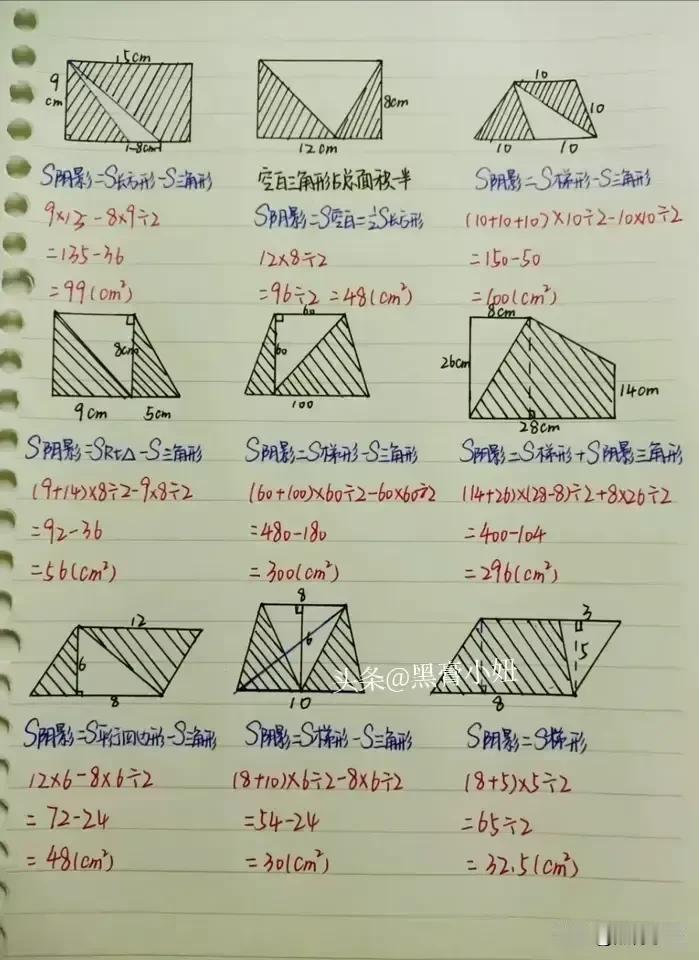 15cm
9
cm
8cm
8cm
12cm
10
10
10
10
S阴影=S长方形-S三角形
空白三角形占总面积一半
S阴影=S梯形-S三角形
9×15-8×9÷2
S阴影=S空白=½S长方形
(10+10+10)×10÷2-10×10÷2
=135-36
12×8÷2
=150-50
=99(cm²)
=96÷2=48(cm²)
=100(cm²)
8cm
9cm
5cm
60
60
100
8cm
26cm
14cm
28cm
S阴影=SRt△-S三角形
S阴影=S梯形-S三角形
S阴影=S梯形+S阴影三角形
(9+14)×8÷2-9×8÷2
(60+100)×60÷2-60×60÷2
(14+26)×(28-8)÷2+8×26÷2
=92-36
=480-180
=400-104
=56(cm²)
=300(cm²)
=296(cm²)
12
6
8
8
6
10
3
5
8
头条@黑膏小妞
S阴影=S平行四边形-S三角形
S阴影=S梯形-S三角形
S阴影=S梯形
12×6-8×6÷2
(8+10)×6÷2-8×6÷2
(8+5)×5÷2
=72-24
=54-24
=65÷2
=48(cm²)
=30(cm²)
=32.5(cm²)